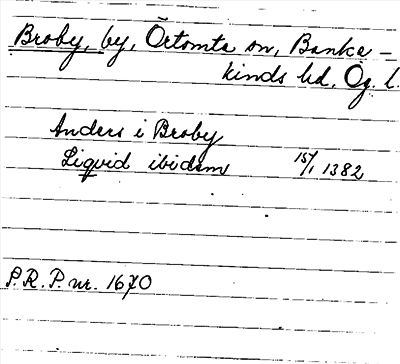 Broby, by, Örtomta sn, Banke-
kinds hd. Ög. l.
Anders i Broby
Liquid ibidem 15/1 1382
P.R.P. nr. 1670